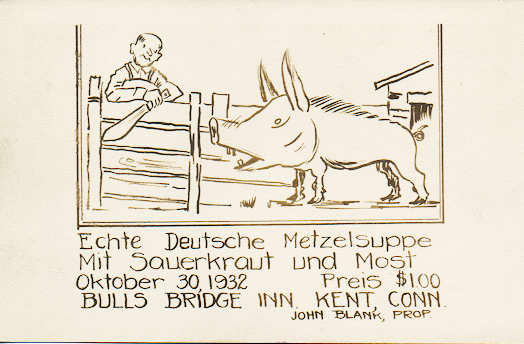 Echte Deutsche Metzelsuppe
Mit Sauerkraut und Most
Oktober 30, 1932 Preis $1.00
BULLS BRIDGE INN. KENT, CONN.
JOHN BLANK, PROP.